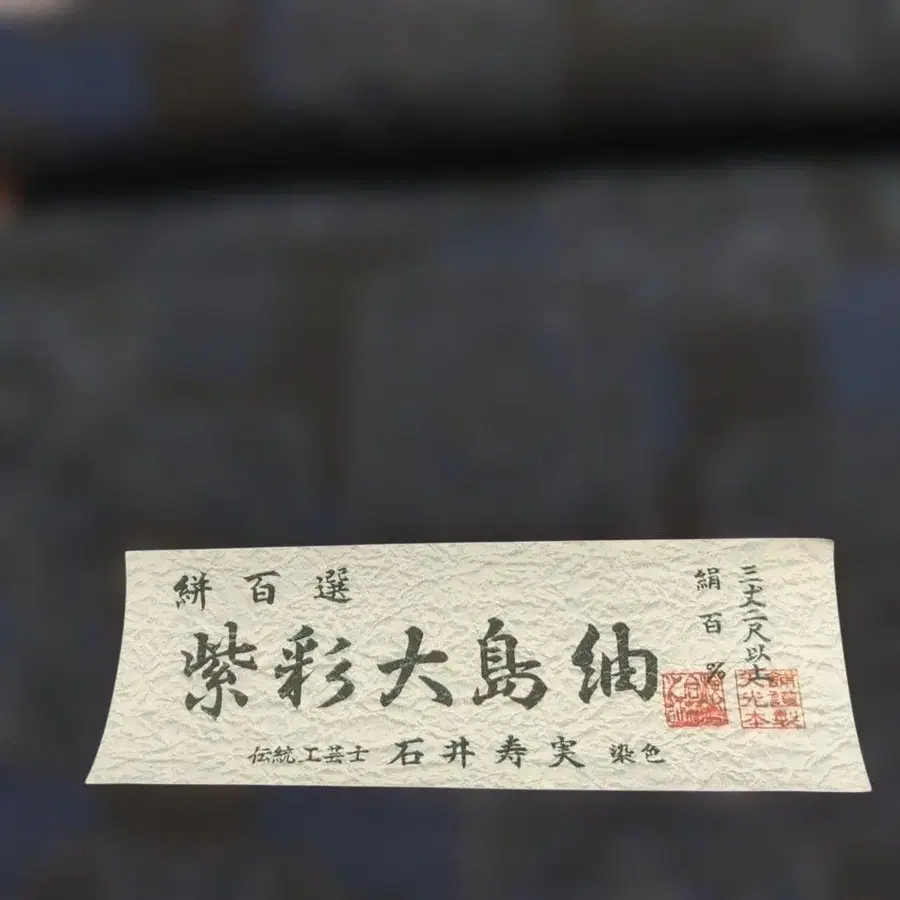 絣百選
紫彩大島紬
伝統工芸士 石井寿実 染色
絹百%
三丈二尺以上